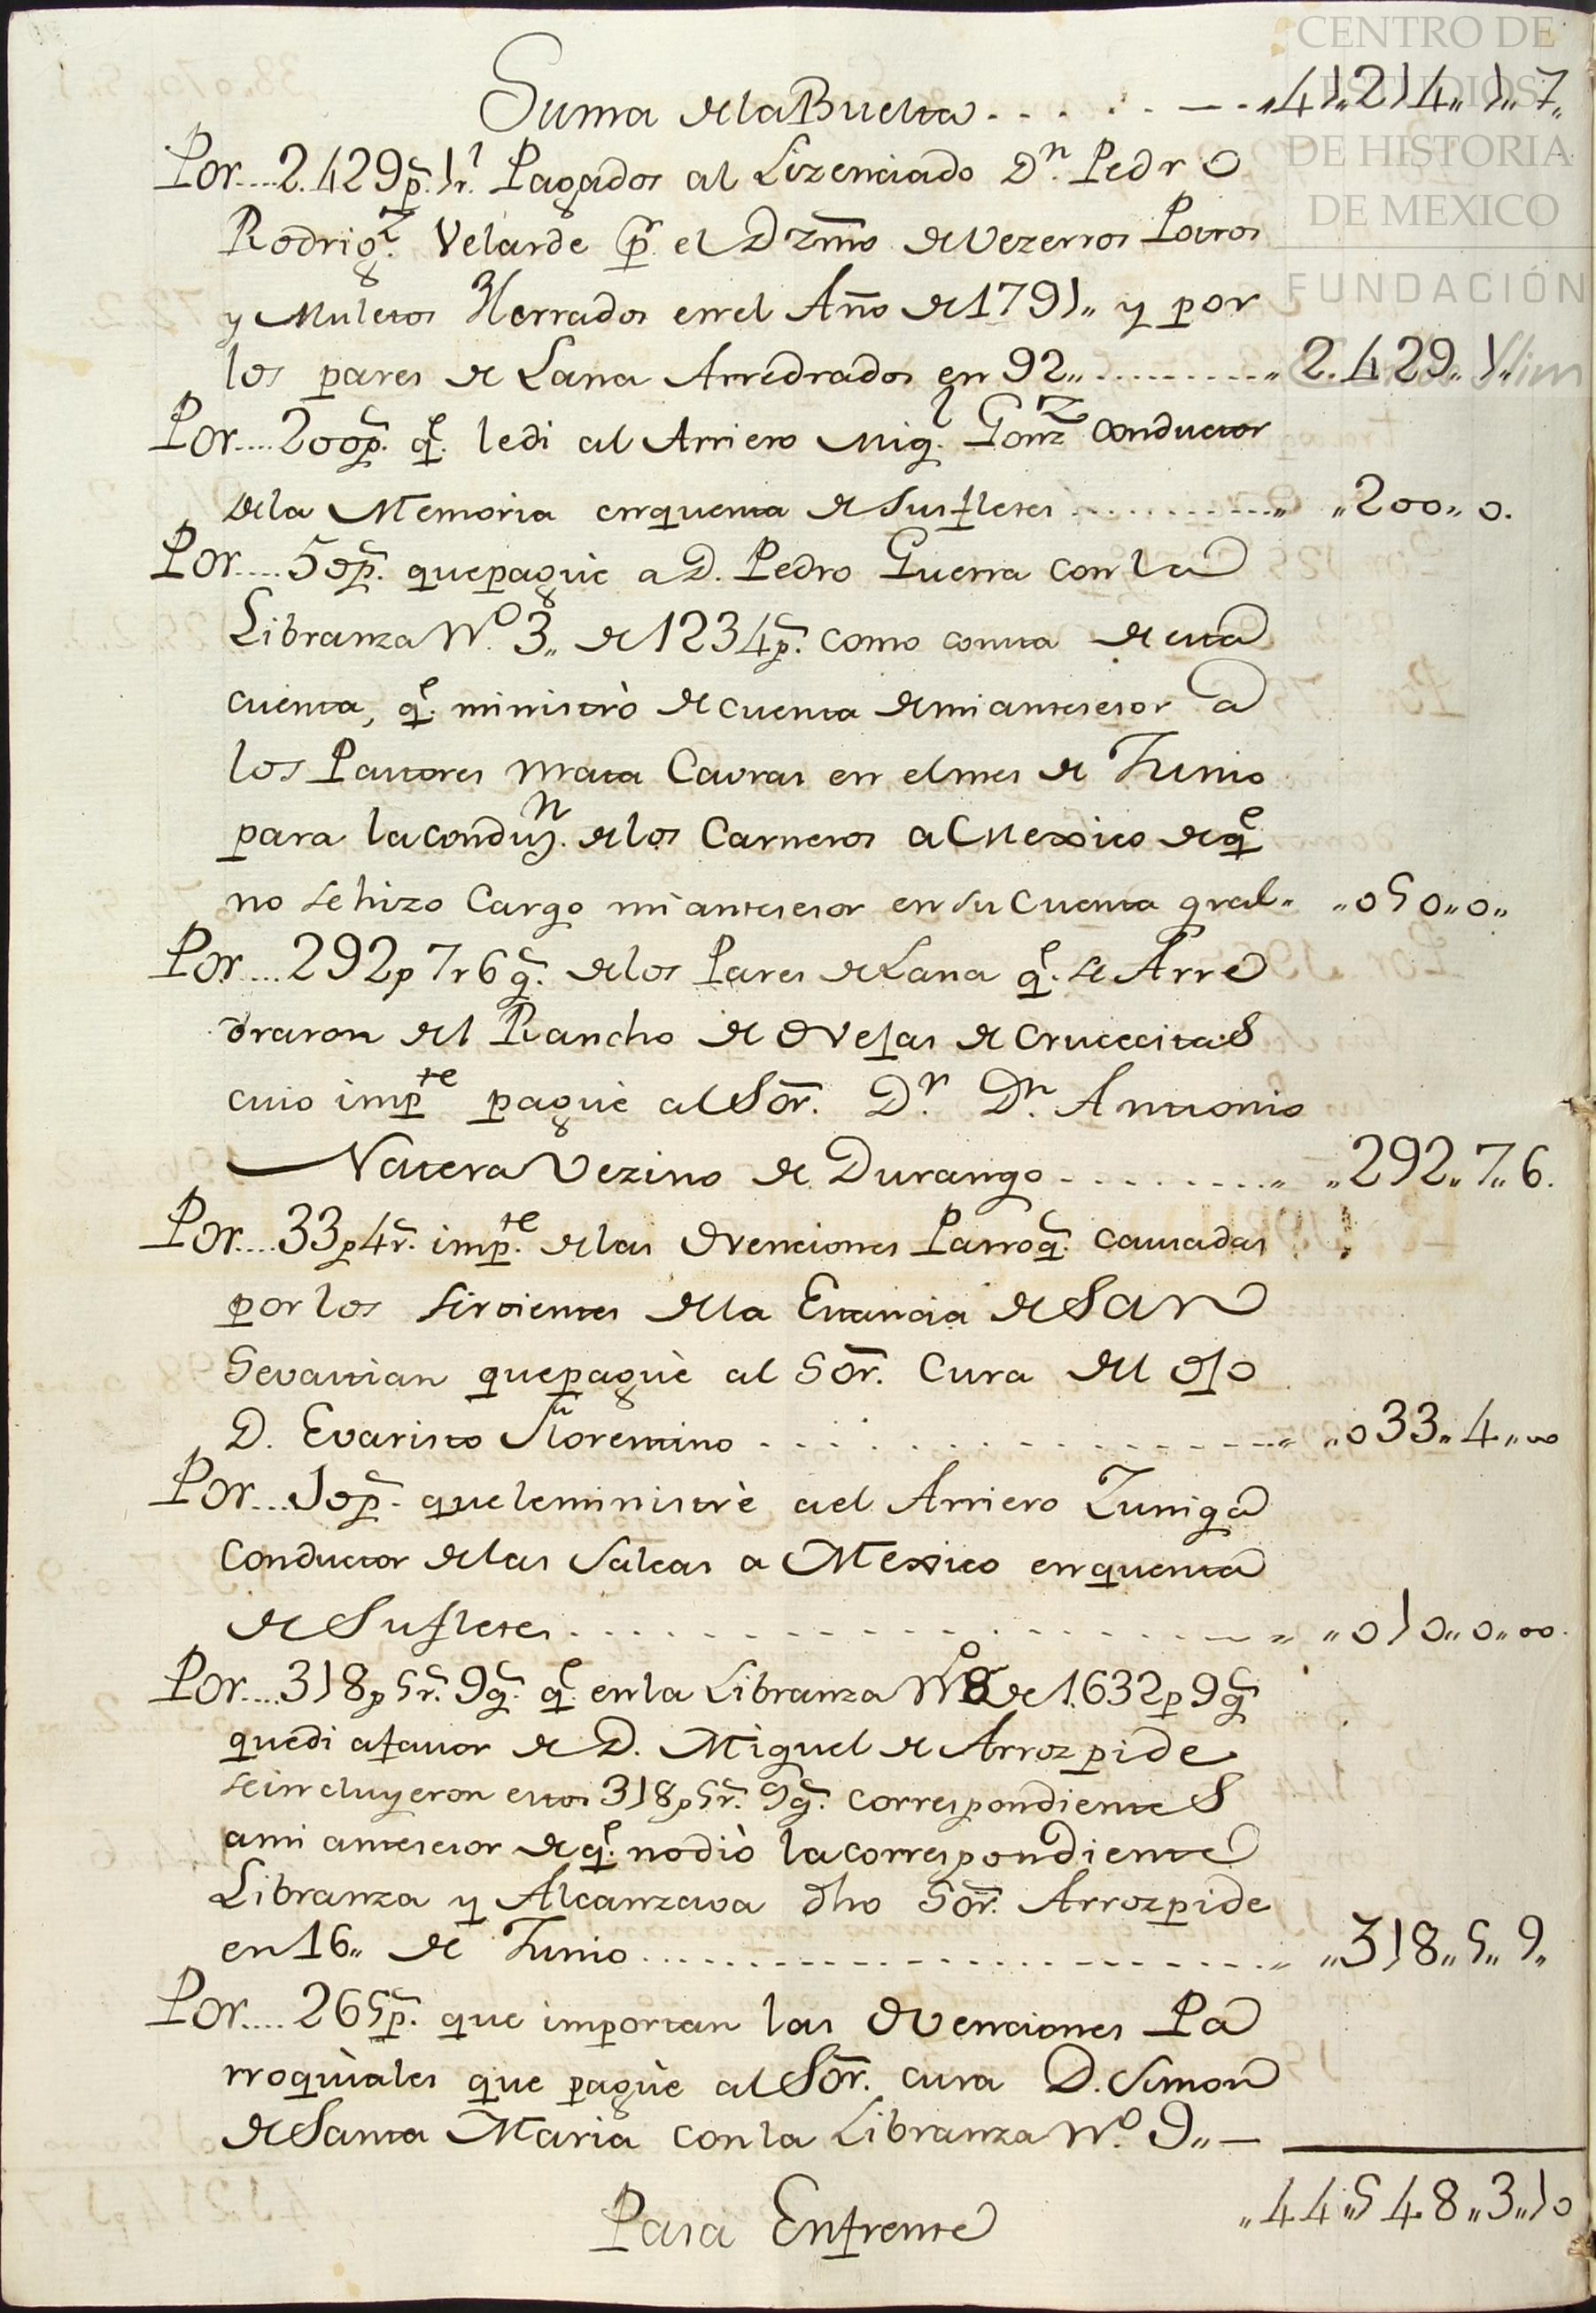 CENTRO DE
ESTUDIOS
DE HISTORIA
DE MEXICO
FUNDACIÓN
Suma de la Buelta. . . . . — . „41„214„1„7„
Por.... 2.429p.s 1r.l Pagados al Lizenciado D.n Pedro
Rodrig.z Velarde p.r el Dzmo de Vezerros Potros
y Muletos Herrados en el Año de 1791„ y por
los pares de Lana Arredrados en 92„.......... „ 2.429„1„
Por.... 200p.s q.e le di al Arriero Mig.l Gonz.z conductor
de la Memoria en quenta de sus fletes ............„ „200„0.
Por.... 50p.s que paguè a D. Pedro Guerra con la
Libranza N.o 3„ de 1234p.s como consta de esta
cuenta, q.e ministrò de cuenta de mi antesesor a
los Pastores mata Cavras en el mes de Junio
para la conduz.n de los Carneros a Mexico de q.e
no se hizo Cargo mi antesesor en su Cuenta gral„ „050„0„
Por.... 292p 7r 6g.s de los Pares de Lana q.e se Arre
draron del Rancho de Ovejas de Crucecitas
cuio imp.te paguè al Sor. D.r D.n Antonio
Natera Vezino de Durango .........„ „292„7„6.
Por.... 33p 4r.s imp.te de las Ovenciones Parroq.s causadas
por los sirvientes de la Estancia de San
Sevastian que paguè al Sor. Cura del Ojo
D. Evaristo Florentino . . . . . . . . . „ „033„4„00
Por.... 10p.s que le ministrè a el Arriero Zuniga
Conductor de las Saleas a Mexico en quenta
de Su fletes . . . . . . . . . . „ „010„0„00.
Por.... 318p 5r.s 9g.s q.e en la Libranza N.o 8 de 1.632p 9g.s
que di a favor de D. Miguel de Arrozpide
se incluyeron estos 318p 5r.s 9g.s correspondientes
a mi antesesor de q.e no diò la correspondiente
Libranza y Alcanzava dho Sor. Arrozpide
en 16„ de Junio . . . . . . . . . . „ „318„5„9„
Por.... 265p.s que importan las Ovenciones Pa
rroquiales que paguè al Sor. cura D. Simon
de Santa Maria con la Libranza N.o 9„ —
Para Enfrente „44„548„3„10